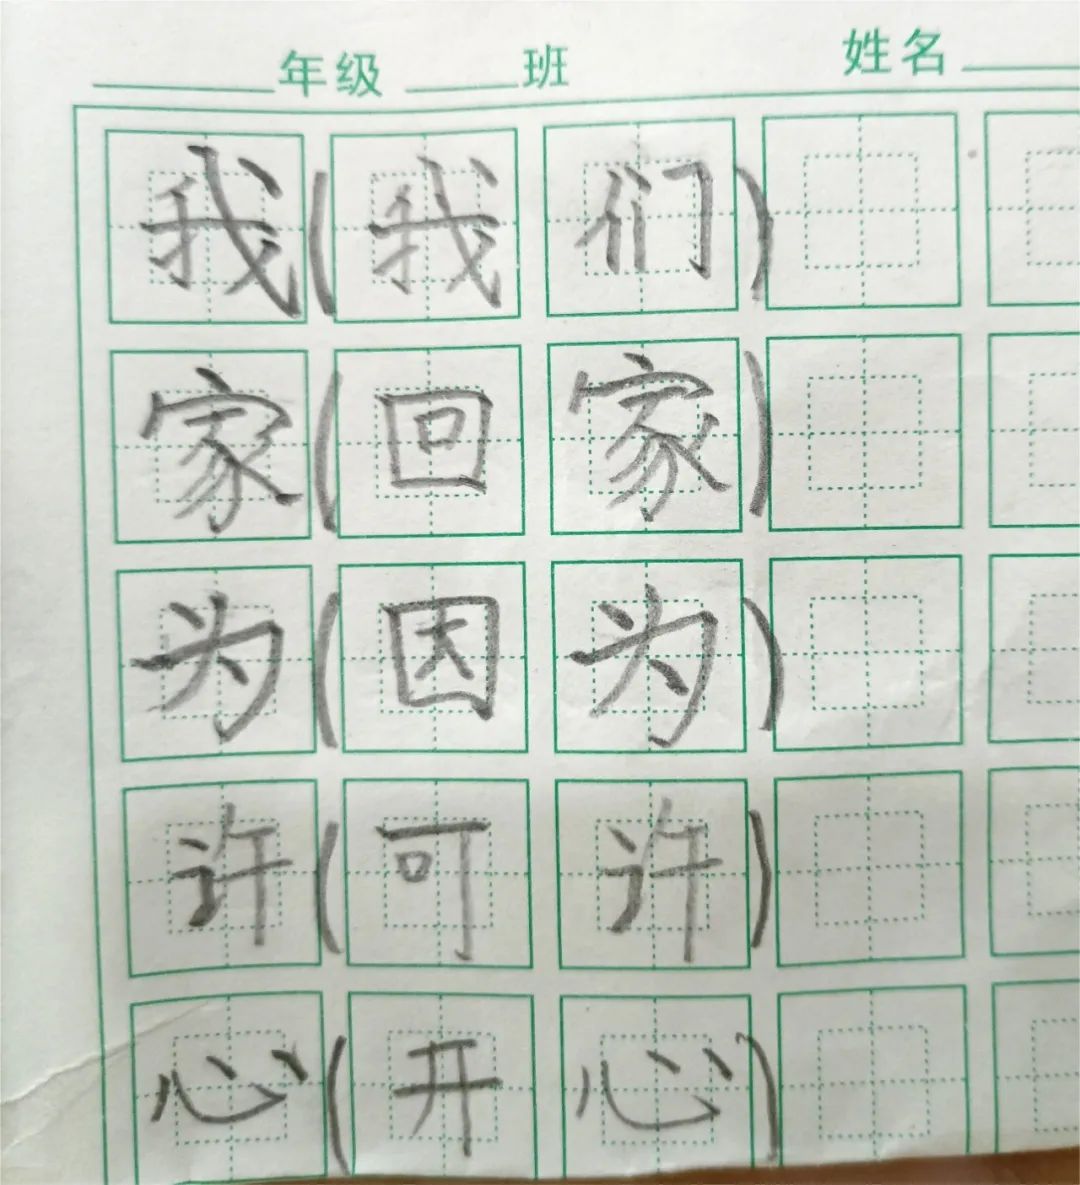 年级 班 姓名
我(我们)
家(回家)
为(因为)
许(可许)
心(开心)